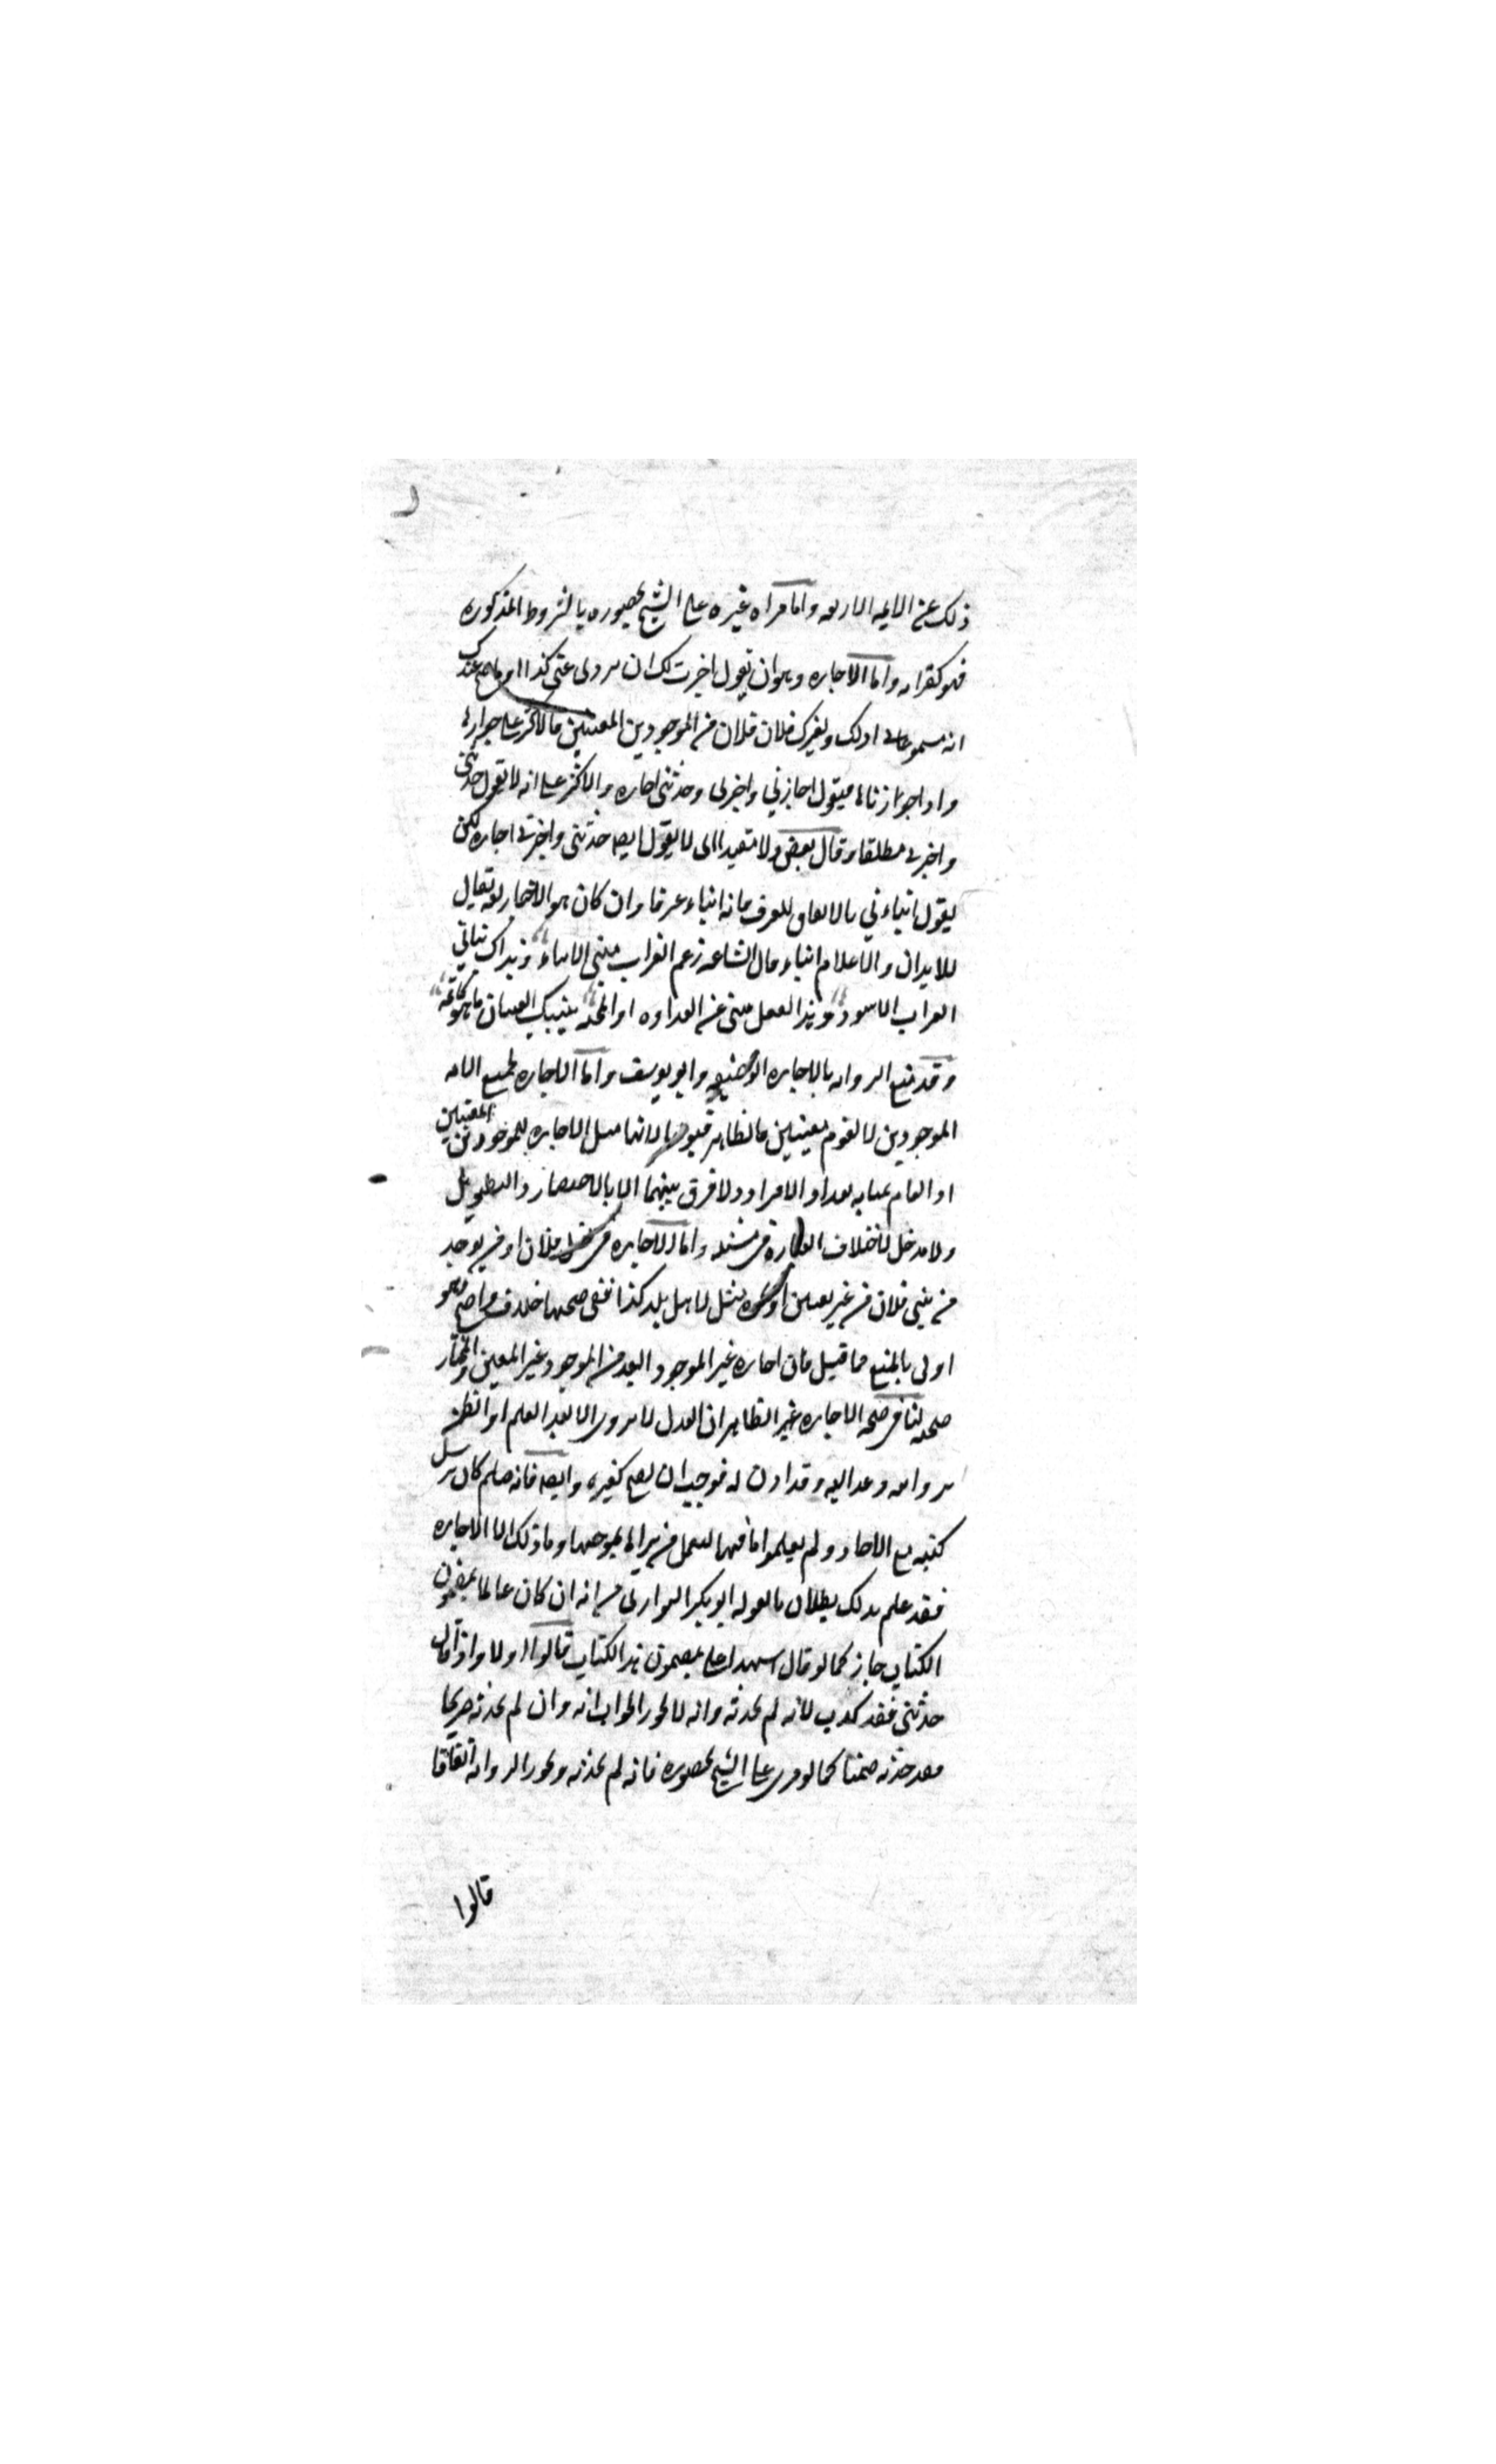 ذلك عن الايمه الاربعه واما قراه غيره على الشيخ بحضوره بالشروط المذكوره
فهو كقراته واما الاجازه وهو ان يقول اجزت لك ان تروي عني كذا او ما صح عندك
انه مسموعاتي او لك ولغيرك فلان فلان من الموجودين المعينين فالاكثر على جوازها
واذا جوزناها فيقول اجازني واخبرني وحدثني اجازه والاكثر على انه لا يقول حدثني
واخبرني مطلقا وقال بعض ولا مقيدا اي لا يقول ايضا حدثني واخبرني اجازه لكن
يقول انباءني بالاتفاق للعرف فانه انباء عرفا وان كان هو الاخبار لغه يقال
للايذان والاعلام انباء قال الشاعر زعم الغراب منبي الانباء وبذاك نباني
الغراب الاسود وهذا الفعل ينبي عن العداوه او المحبه ينبيك العينان ما هو كاتمه
وقد منع الروايه بالاجازه ابو حنيفه وابو يوسف واما الاجازه لجميع الامه
الموجودين لا لقوم معينين فالظاهر قبولها لانها مثل الاجازه للموجودين المعينين
او العام بمثابه تعداد الافراد ولا فرق بينهما الا بالاختصار والتطويل
ولا مدخل لاختلاف العباره في مثله واما الاجازه من نسل فلان او من يوجد
من بني فلان من غير تعيين او غيره مثل لاهل بلد كذا ففي صحتها خلاف واضح وهو
اولى بالمنع مما قبل فان اجازه غير الموجود ابعد من الموجود غير المعين والمختار
صحته لنا في صحه الاجازه غير الظاهر ان العدل لا يروي الا بعد العلم او الظن
بروايته وعدالته وقد اذن له فوجب ان يصح كغيره وايضا فانه صلعم كان يرسل
كتبه مع الاحاد ولم يعلموا ما فيها ليعمل من يراها بموجبها وما ذلك الا الاجازه
فقد علم بذلك بطلان ما يقوله ابو بكر الرازي من انه ان كان عالما بمضمون
الكتاب جاز كما لو قال اشهد علي بمضمون هذا الكتاب قالوا اولا واذا قال
حدثني فقد كذب لانه لم يحدثه وانه لا يجوز الجواب انه وان لم يحدثه صريحا
فقد حدثه ضمنا كما لو قري على الشيخ بحضوره فانه لم يحدثه ويجوز الروايه اتفاقا
قالوا